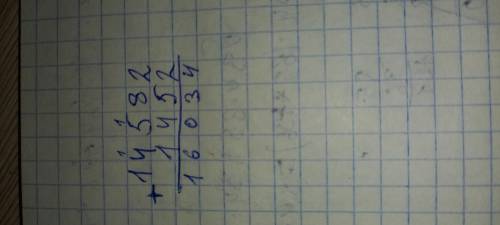 1 1
+14582
1452
16034